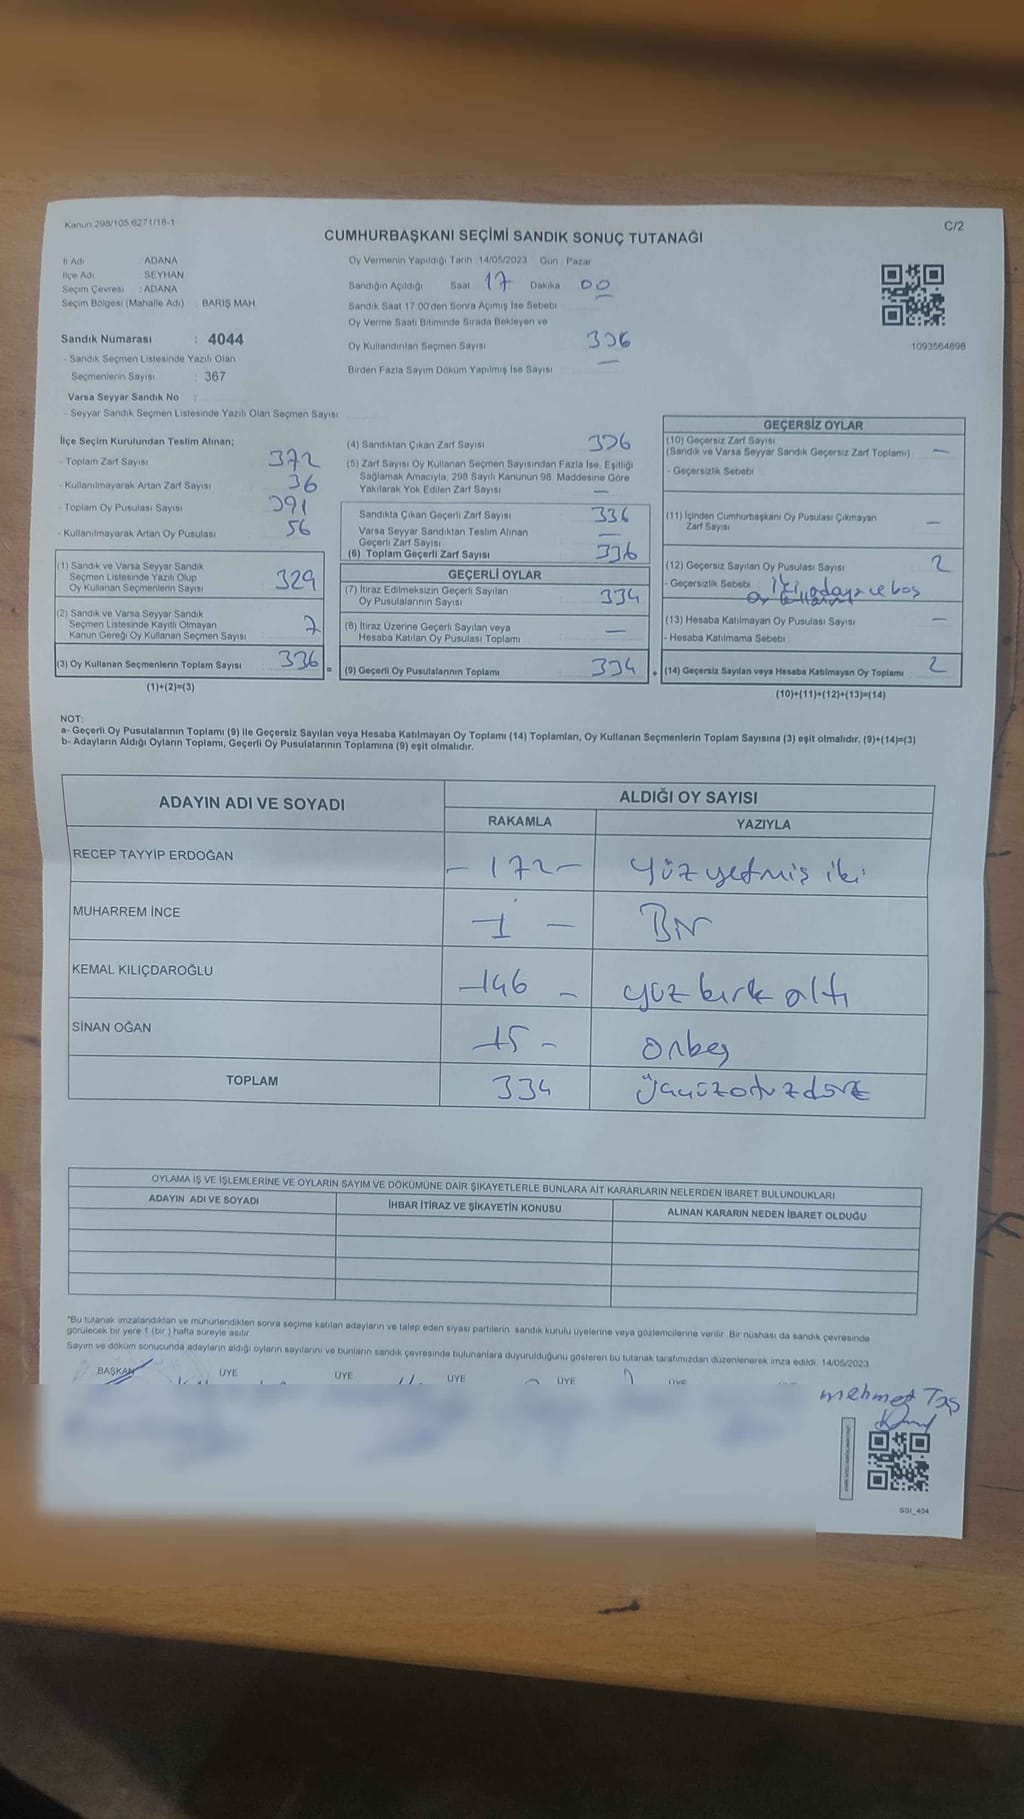 Kanun 298/105,6271/18-1
C/2
CUMHURBAŞKANI SEÇİMİ SANDIK SONUÇ TUTANAĞI
İl Adı : ADANA
İlçe Adı : SEYHAN
Seçim Çevresi : ADANA
Seçim Bölgesi (Mahalle Adı) : BARIŞ MAH.
Sandık Numarası : 4044
- Sandık Seçmen Listesinde Yazılı Olan
Seçmenlerin Sayısı : 367
Varsa Seyyar Sandık No :
- Seyyar Sandık Seçmen Listesinde Yazılı Olan Seçmen Sayısı
Oy Vermenin Yapıldığı Tarih :14/05/2023 Gün : Pazar
Sandığın Açıldığı Saat 17 Dakika 00
Sandık Saat 17.00'den Sonra Açılmış İse Sebebi
Oy Verme Saati Bitiminde Sırada Bekleyen ve
Oy Kullandırılan Seçmen Sayısı 336
Birden Fazla Sayım Döküm Yapılmış İse Sayısı —
1093564898
İlçe Seçim Kurulundan Teslim Alınan;
- Toplam Zarf Sayısı 372
- Kullanılmayarak Artan Zarf Sayısı 36
- Toplam Oy Pusulası Sayısı 391
- Kullanılmayarak Artan Oy Pusulası 56
(1) Sandık ve Varsa Seyyar Sandık
Seçmen Listesinde Yazılı Olup
Oy Kullanan Seçmenlerin Sayısı 329
(2) Sandık ve Varsa Seyyar Sandık
Seçmen Listesinde Kayıtlı Olmayan
Kanun Gereği Oy Kullanan Seçmen Sayısı 7
(3) Oy Kullanan Seçmenlerin Toplam Sayısı 336 =
(1)+(2)=(3)
(4) Sandıktan Çıkan Zarf Sayısı 336
(5) Zarf Sayısı Oy Kullanan Seçmen Sayısından Fazla İse, Eşitliği
Sağlamak Amacıyla, 298 Sayılı Kanunun 98. Maddesine Göre
Yakılarak Yok Edilen Zarf Sayısı —
Sandıkta Çıkan Geçerli Zarf Sayısı 336
Varsa Seyyar Sandıktan Teslim Alınan
Geçerli Zarf Sayısı —
(6) Toplam Geçerli Zarf Sayısı 336
GEÇERLİ OYLAR
(7) İtiraz Edilmeksizin Geçerli Sayılan
Oy Pusulalarının Sayısı 334
(8) İtiraz Üzerine Geçerli Sayılan veya
Hesaba Katılan Oy Pusulası Toplamı —
(9) Geçerli Oy Pusulalarının Toplamı 334 +
GEÇERSİZ OYLAR
(10) Geçersiz Zarf Sayısı
(Sandık ve Varsa Seyyar Sandık Geçersiz Zarf Toplamı) —
- Geçersizlik Sebebi
(11) İçinden Cumhurbaşkanı Oy Pusulası Çıkmayan
Zarf Sayısı —
(12) Geçersiz Sayılan Oy Pusulası Sayısı 2
- Geçersizlik Sebebi İki adaya ve boş
oy
(13) Hesaba Katılmayan Oy Pusulası Sayısı —
- Hesaba Katılmama Sebebi
(14) Geçersiz Sayılan veya Hesaba Katılmayan Oy Toplamı 2
(10)+(11)+(12)+(13)=(14)
NOT:
a- Geçerli Oy Pusulalarının Toplamı (9) İle Geçersiz Sayılan veya Hesaba Katılmayan Oy Toplamı (14) Toplamları, Oy Kullanan Seçmenlerin Toplam Sayısına (3) eşit olmalıdır. (9)+(14)=(3)
b- Adayların Aldığı Oyların Toplamı, Geçerli Oy Pusulalarının Toplamına (9) eşit olmalıdır.
ADAYIN ADI VE SOYADI
ALDIĞI OY SAYISI
RAKAMLA YAZIYLA
RECEP TAYYİP ERDOĞAN - 172 - yüz yetmiş iki
MUHARREM İNCE - 1 - Bir
KEMAL KILIÇDAROĞLU - 146 - yüz kırk altı
SİNAN OĞAN - 15 - onbeş
TOPLAM 334 üçyüzotuzdört
OYLAMA İŞ VE İŞLEMLERİNE VE OYLARIN SAYIM VE DÖKÜMÜNE DAİR ŞİKAYETLERLE BUNLARA AİT KARARLARIN NELERDEN İBARET BULUNDUKLARI
ADAYIN ADI VE SOYADI İHBAR İTİRAZ VE ŞİKAYETİN KONUSU ALINAN KARARIN NEDEN İBARET OLDUĞU
"Bu tutanak imzalandıktan ve mühürlendikten sonra seçime katılan adayların ve talep eden siyasi partilerin sandık kurulu üyelerine veya gözlemcilerine verilir. Bir nüshası da sandık çevresinde
görülecek bir yere 1 (bir ) hafta süreyle asılır.
Sayım ve döküm sonucunda adayların aldığı oyların sayılarını ve bunların sandık çevresinde bulunanlara duyurulduğunu gösteren bu tutanak tarafımızdan düzenlenerek imza edildi. 14/05/2023
BAŞKAN ÜYE ÜYE ÜYE ÜYE ÜYE
mehmet Taş
SSI_404